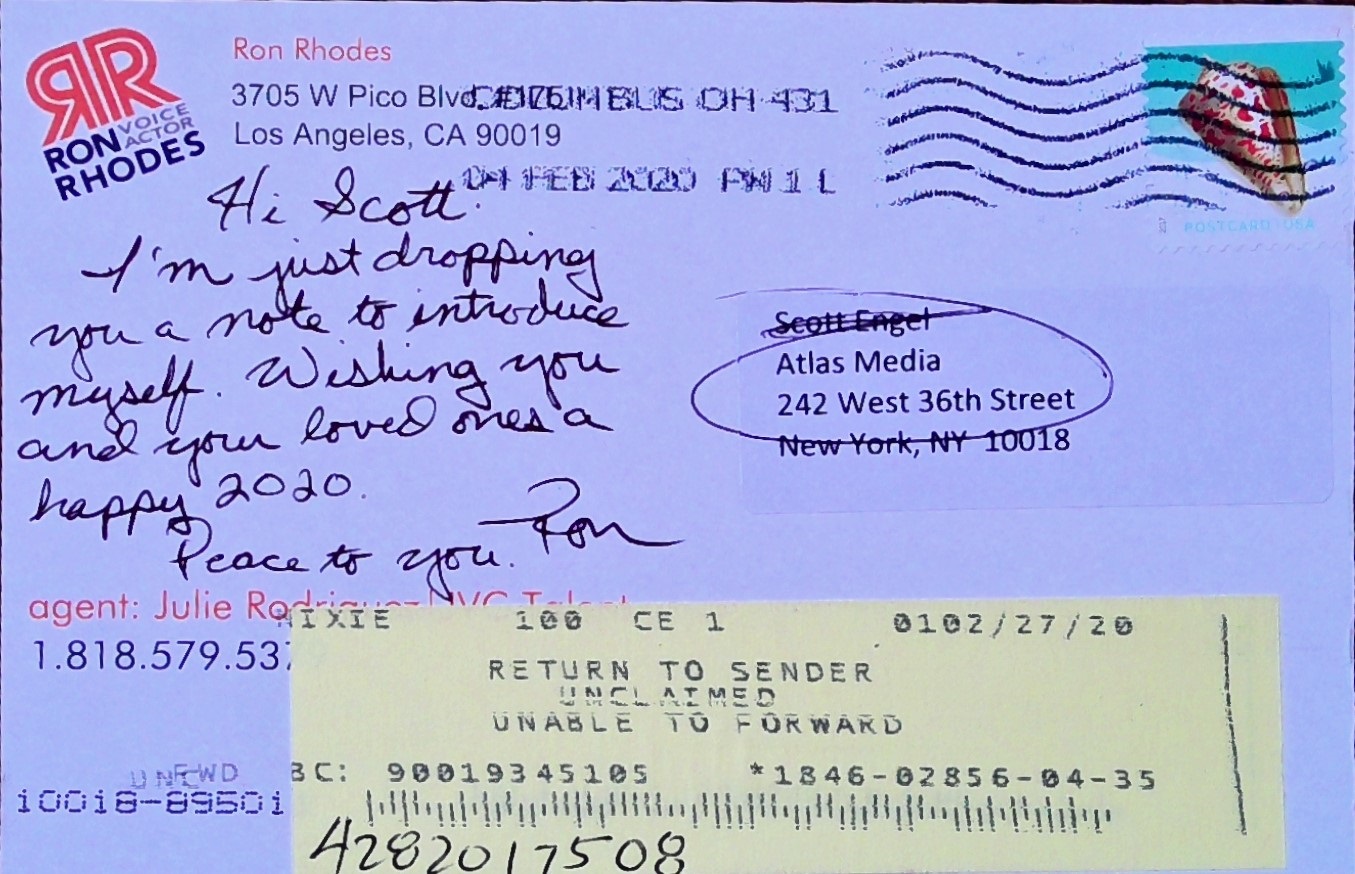 RR
RON VOICE
ACTOR
RHODES
Ron Rhodes
3705 W Pico Blvd.
Los Angeles, CA 90019
COLUMBUS OH 431
04 FEB 2020 PM 1 L
POSTCARD USA
Hi Scott.
I'm just dropping
you a note to introduce
myself. Wishing you
and your loved ones a
happy 2020.
Peace to you. Ron
Scott Engel
Atlas Media
242 West 36th Street
New York, NY 10018
agent: Julie Rodriguez
1.818.579.537
NIXIE 100 CE 1 0102/27/20
RETURN TO SENDER
UNCLAIMED
UNABLE TO FORWARD
BC: 90019345105 *1846-02856-04-35
UNC
FWD
10018-89501
4282017508